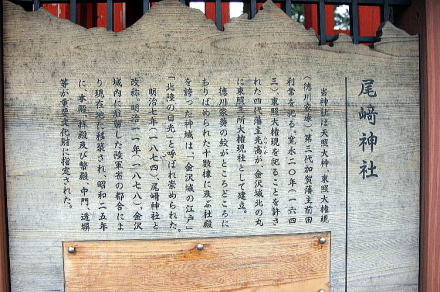 尾﨑神社
当神社は天照大神・東照大権現
(徳川家康)・第三代加賀藩主前田
利常を祀る。寛永二〇年(一六四
三)、東照大権現を祀ることを許さ
れた四代藩主光高が、金沢城北の丸
に東照三所大権現社として建立。
徳川家葵の紋がところどころに
ちりばめられた十数棟に及ぶ社殿
を誇った神域は、「金沢城の江戸」
「北陸の日光」と呼ばれ崇められた。
明治七年(一八七四)、尾﨑神社と
改称。明治一一年(一八七八)、金沢
城内に駐留した陸軍省の都合によ
り現在地に移築され、昭和二五年
に、本殿、拝殿及び幣殿、中門、透塀
等が重要文化財に指定された。